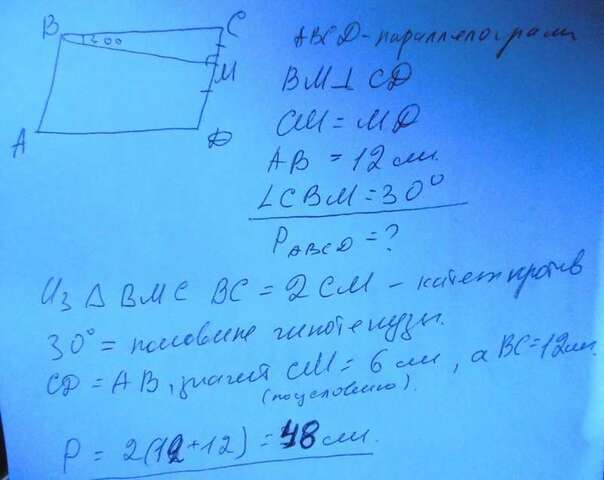 B C
300
M
A D
ABCD - параллелограмм
BM⊥CD
CM = MD
AB = 12 см.
∠CBM = 30°
P ABCD = ?
Из △ BMC BC = 2CM - катет против
30° = половине гипотенузы.
CD = AB, значит CM = 6 см, а BC = 12 см.
(по условию).
P = 2(12 + 12) = 48 см.